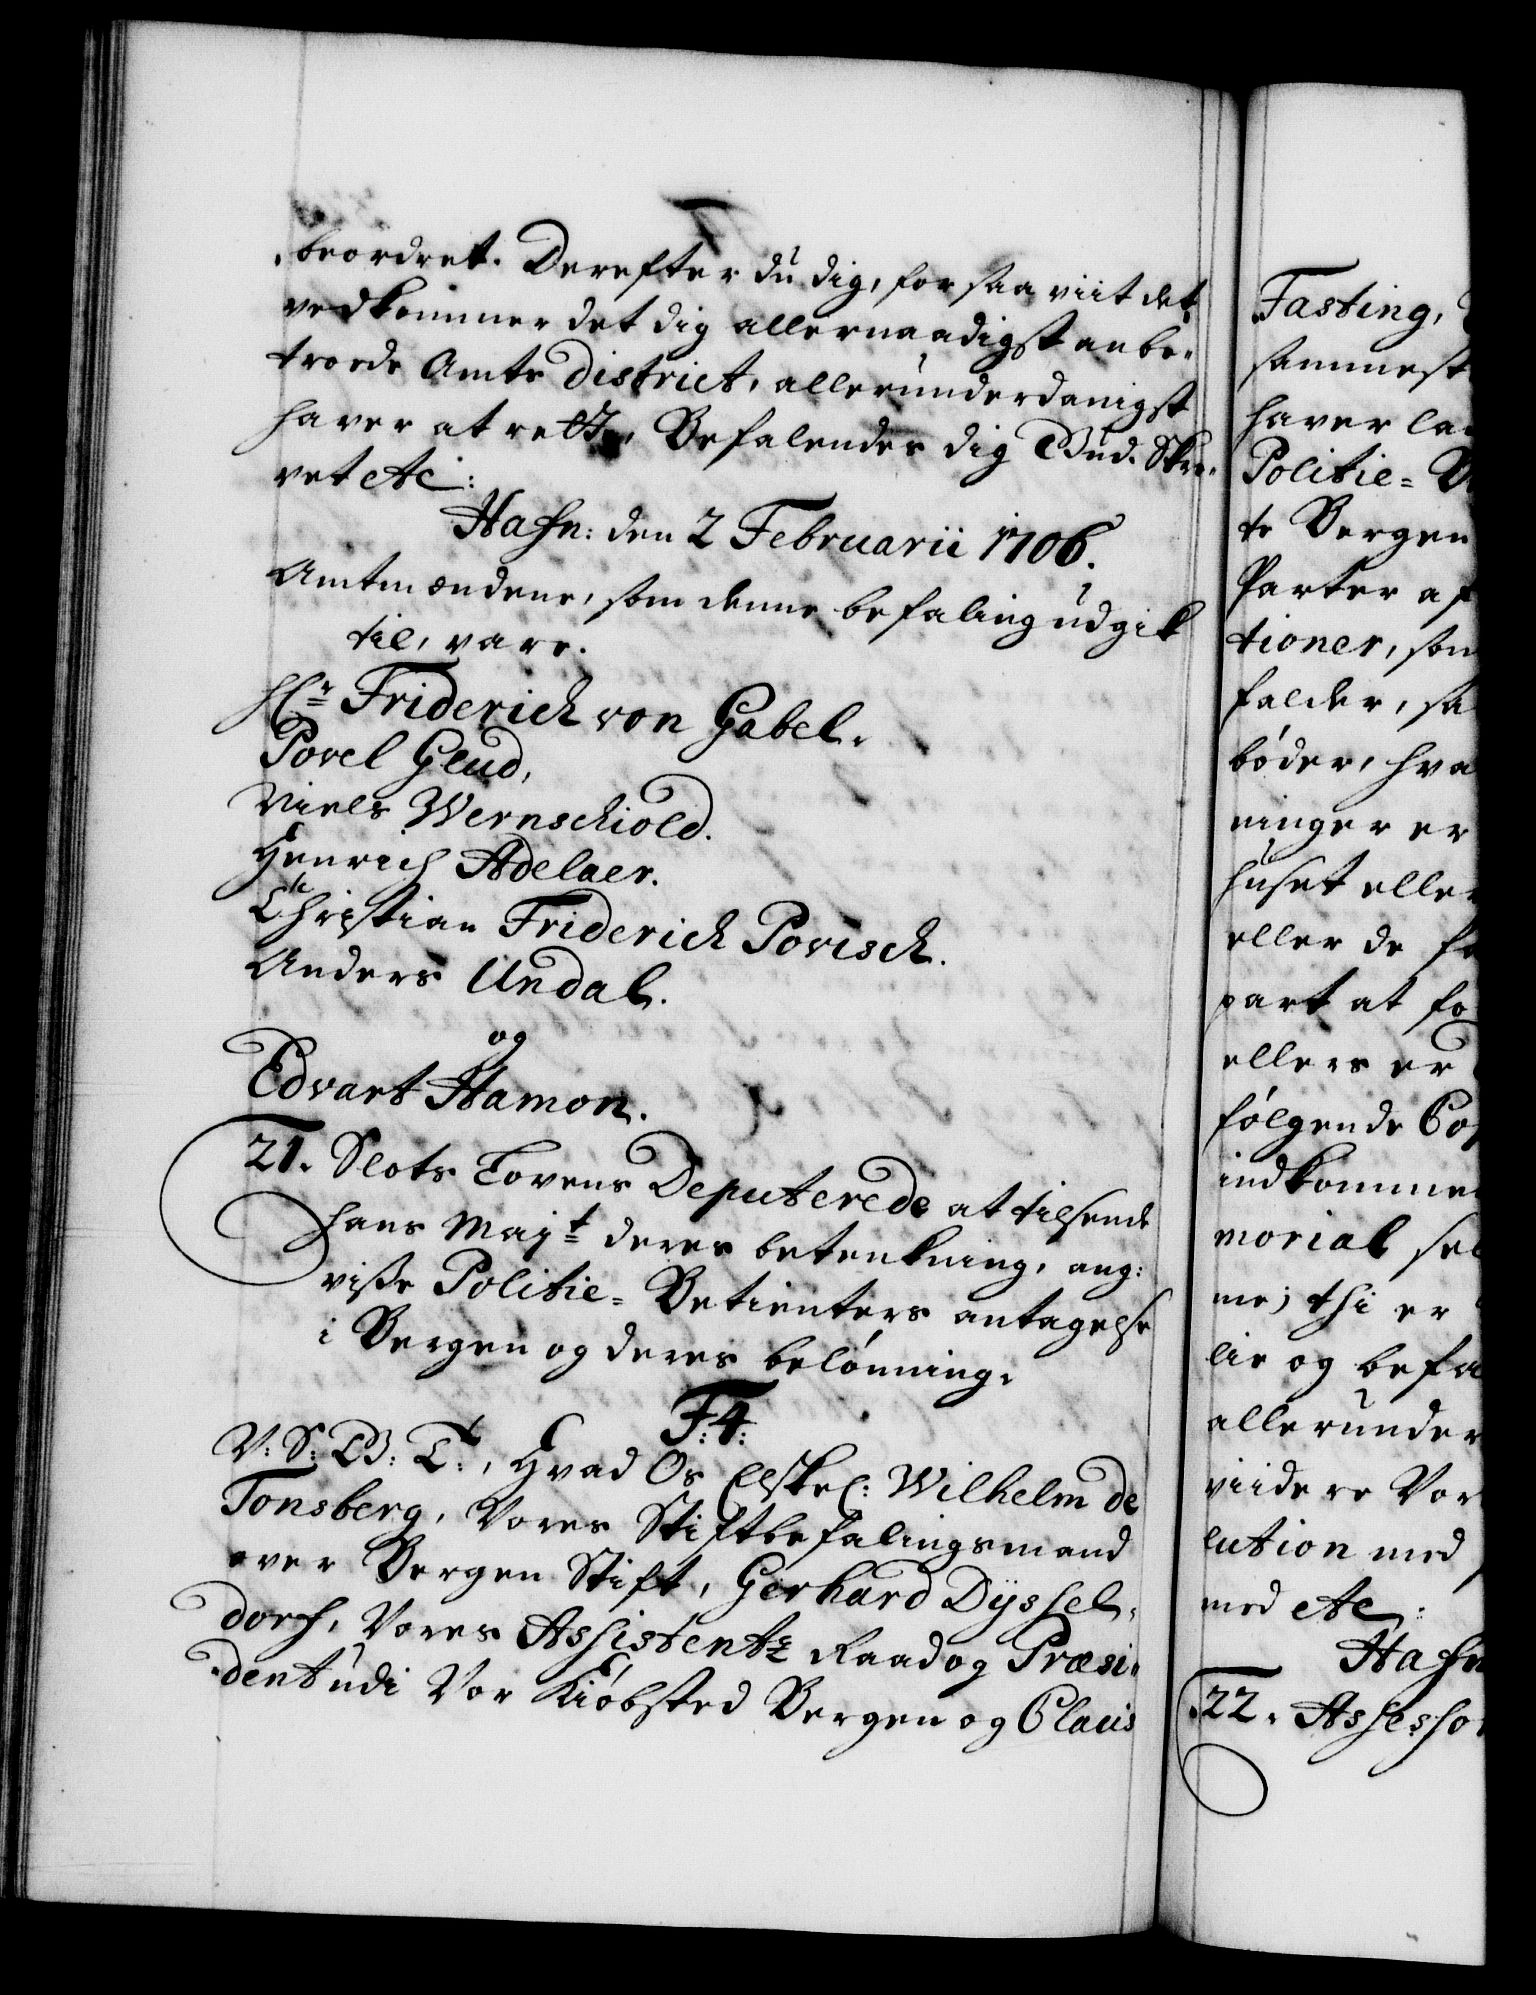 beordret. Derefter du dig, for saa viit det
vedkommer det dig allernaadigst anbe-
troede Amts District, allerunderdanigst
haver at rette, Befalendes dig Gud. Skre-
vet etc:
Hafn: den 2 Februarii 1706.
Amtmændene, som denne befaling udgik
til, vare.
Hr Friderich von Gabel.
Povel Glud,
Niels Wernschiold.
Henrich Adelaer.
Christian Friderich Povisch.
Anders Undal.
og
Edvart Hamon.
21. Slots Lovens Deputerede at tilsende
hans Mayt deres betenkning, ang:
visse Politie=Betienters antagelse
i Bergen og deres belønning.
F: 4:
V: S: G: T:, Hvad Os Elskel: Wilhelm de
Tonsberg, Vores Stiftbefalingsmand
over Bergen Stift, Gerhard Dyssel-
dorf, Vores Assistentz Raad og Præsi-
dent udi Vor Kiøbsted Bergen og Claus
Fasting,
sammest
haver la
Politie=
te Bergen
Parter af
tioner, som
falder, sa
bøder, hva
ninger er
huset eller
eller de
part at fo
ellers er
følgende Cop
indkommen
morial sel
me; thi er
lie og befa
allerunder
viidere Vor
lution med
med etc:
Hafn
22. Assessor